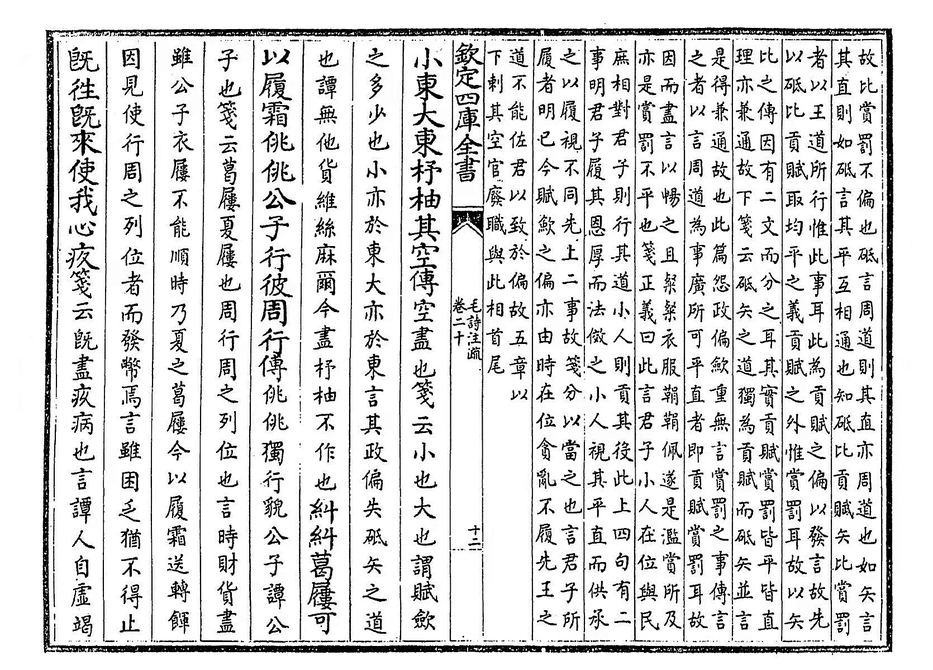 故比賞罰不偏也砥言周道則其直亦周道也如矢言
其直則如砥言其平互相通也知砥比貢賦矢比賞罰
者以王道所行惟此事耳此為貢賦之偏以發言故先
以砥比貢賦取均平之義貢賦之外惟賞罰耳故以矢
比之傳因有二文而分之耳其實貢賦賞罰皆平皆直
理亦兼通故下箋云砥矢之道獨為貢賦而砥矢並言
是得兼通故也此篇怨政偏斂重無言賞罰之事傳言
之者以言周道為事廣所可平直者即貢賦賞罰耳故
因而盡言以暢之且粲粲衣服鞙鞙佩璲是濫賞所及
亦是賞罰不平也箋正義曰此言君子小人在位與民
庶相對君子則行其道小人則貢其役此上四句有二
事明君子履其恩厚而法傚之小人視其平直而供承
之以履視不同先上二事故箋分以當之也言君子所
履者明已今賦斂之偏亦由時在位貪亂不履先王之
道不能佐君以致於偏故五章以
下刺其空官廢職與此相首尾
欽定四庫全書
毛詩注疏
卷二十
十二
小東大東杼柚其空傳空盡也箋云小也大也謂賦斂
之多少也小亦於東大亦於東言其政偏失砥矢之道
也譚無他貨維絲麻爾今盡杼柚不作也糾糾葛屨可
以履霜佻佻公子行彼周行傳佻佻獨行貌公子譚公
子也箋云葛屨夏屨也周行周之列位也言時財貨盡
雖公子衣屨不能順時乃夏之葛屨今以履霜送轉餫
因見使行周之列位者而發幣焉言雖困乏猶不得止
旣往旣來使我心疚箋云旣盡疚病也言譚人自虛竭